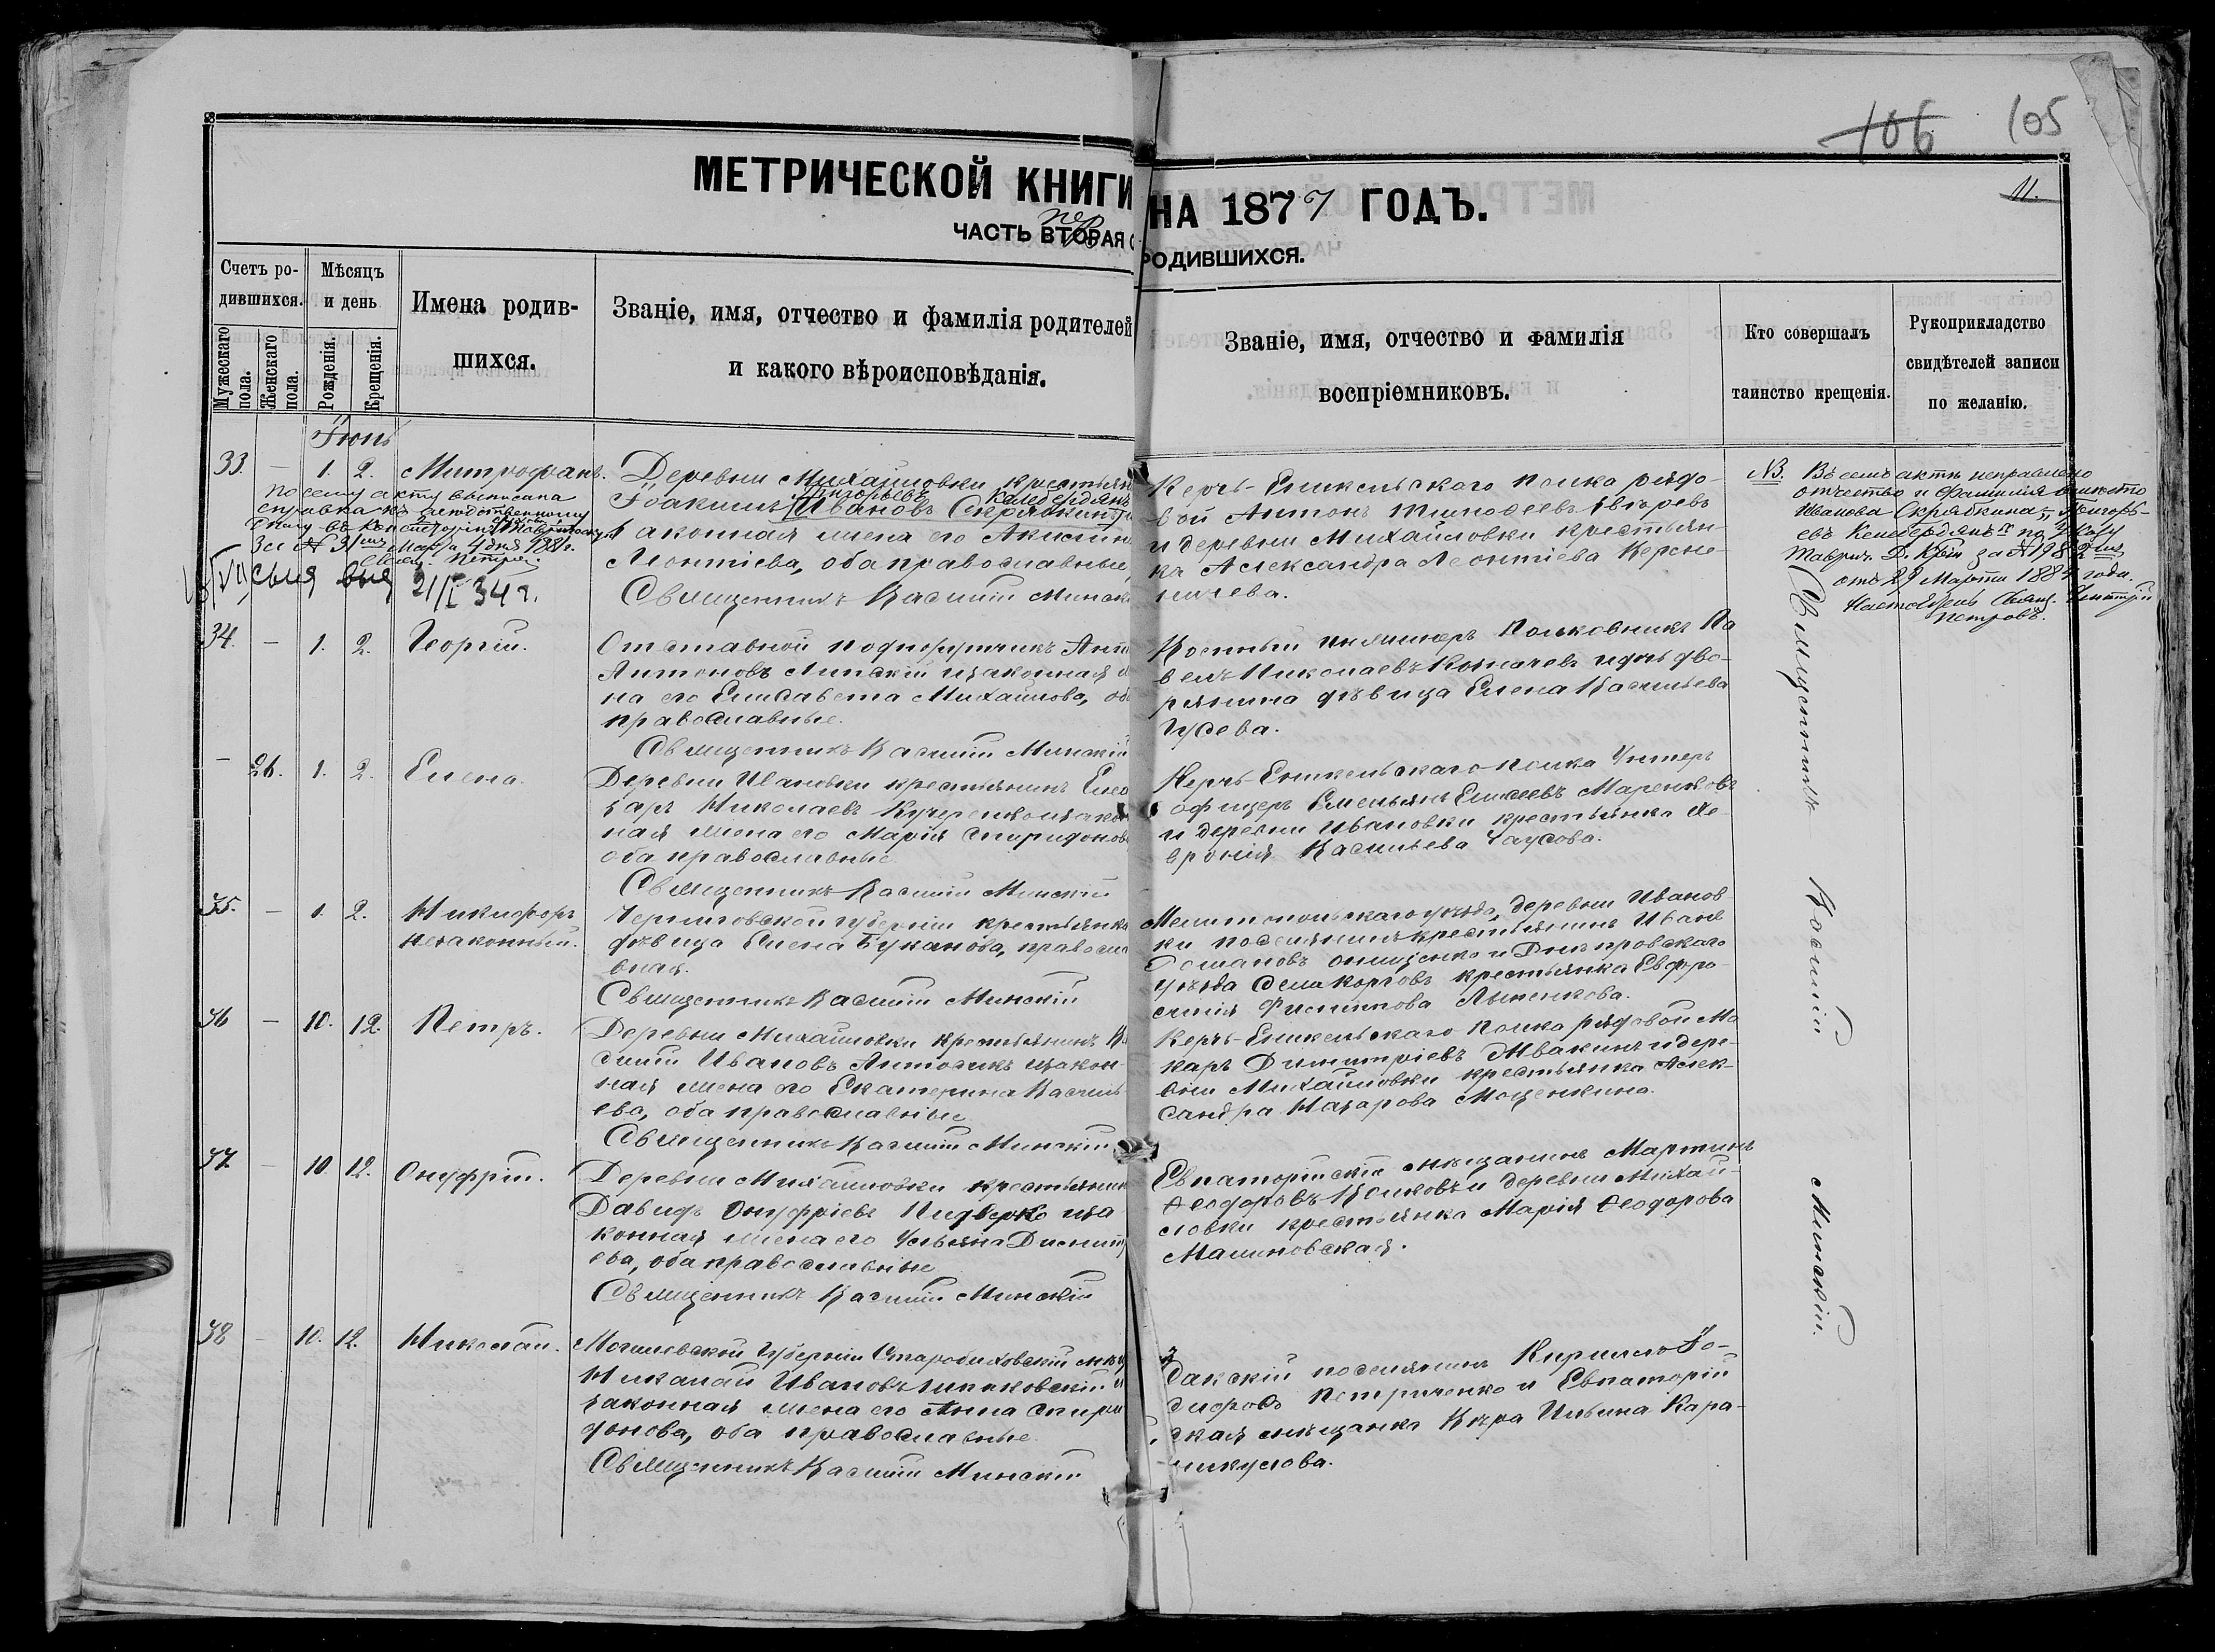 106 105
МЕТРИЧЕСКОЙ КНИГИ НА 1877 ГОДЪ.
11.
ЧАСТЬ ВТОРАЯ О РОДИВШИХСЯ.
пер
Счетъ ро-
дившихся.
Мужескаго пола.
Женскаго пола.
Мѣсяцъ
и день
Рожденія.
Крещенія.
Имена родив-
шихся.
Званіе, имя, отчество и фамилія родителей
и какого вѣроисповѣданія.
Званіе, имя, отчество и фамилія
воспріемниковъ.
Кто совершалъ
таинство крещенія.
Рукоприкладство
свидѣтелей записи
по желанію.
Іюнь
33. — 1. 2. Митрофанъ.
По сему акту выписана
справка къ
дѣлу въ Консисторію
За № 31 Марта 4 дня 1881 г.
21/I 34 г.
Деревни Михайловки крестьян
Іоакимъ Ивановъ Скрябкинъ и
законная жена его Аксинія
Леонтіева, оба православные,
Священникъ Василій Минскі
Керчь-Еникельскаго полка рядо-
вой Антонъ Тимофеевъ
и деревни Михайловки крестьян-
ка Александра Леонтіева Керсне-
личева.
NB. Въ семъ актѣ исправлено
отчество и фамилія вмѣсто
Иванова Скрябкина
по Указу
отъ 29 Марта 1884 года.
Настоятель Свящ.
Петровъ.
34. — 1. 2. Георгій.
Отставной подпоручикъ Анто
Антоновъ Липскій и законная же
на его Елисавета Михайлова, об
православные.
Священникъ Василій Минскій
Военный инженеръ Полковникъ Па
велъ Николаевъ Компачевъ и дочь дво-
рянина дѣвица Елена Васильева
Гусева.
— 26. 1. 2. Елена.
Деревни Ивановки крестьянинъ Елеа
заръ Николаевъ Кучеренко и закон
ная жена его Марія Спиридонова
оба православные
Священникъ Василій Минскій
Керчь-Еникельскаго полка Унтеръ
офицеръ Емельянъ Елисеевъ Маренковъ
и деревни Ивановки крестьянка Фе-
вронія Васильева Чаусова.
35. — 1. 2. Никифоръ
незаконный.
Черниговской губерніи крестьянка
дѣвица Елена Буханова, правосла
вная.
Священникъ Василій Минскій
Мелитопольскаго уѣзда, деревни Иванов
ки поселянинъ крестьянинъ Иванъ
Романовъ Онищенко и Днѣпровскаго
уѣзда села крестьянка Евфро-
синія Филиппова Лытенкова.
36 — 10. 12. Петръ.
Деревни Михайловки крестьянинъ Ва
силій Ивановъ Антосикъ и закон-
ная жена его Екатерина Василь
ева, оба православные
Священникъ Василій Минскій
Керчь-Еникельскаго полка рядовой Ма
каръ Димитріевъ Ивакинъ и дере-
вни Михайловки крестьянка Алек-
сандра Назарова Моценкина.
37. — 10. 12. Онуфрій.
Деревни Михайловки крестьянинъ
Давидъ Онуфріевъ и за
конная жена его Ульяна Димитрі
ева, оба православные
Священникъ Василій Минскій
Евпаторійскій мѣщанинъ Мартинъ
Ѳеодоровъ Волковъ и деревни Михай-
ловки крестьянка Марія Ѳеодорова
Малиновская.
38 — 10. 12. Николай.
Могилевской Губерніи Старобыховскій мѣщ
Николай Ивановъ и
законная жена его Анна Спири
донова, оба православные
Священникъ Василій Минскій
поселянинъ Кирилло Іо-
сифовъ Петриченко и Евпаторій
ская мѣщанка Вѣра Ильина Кара-
никулова.
Священникъ Василій Минскій.